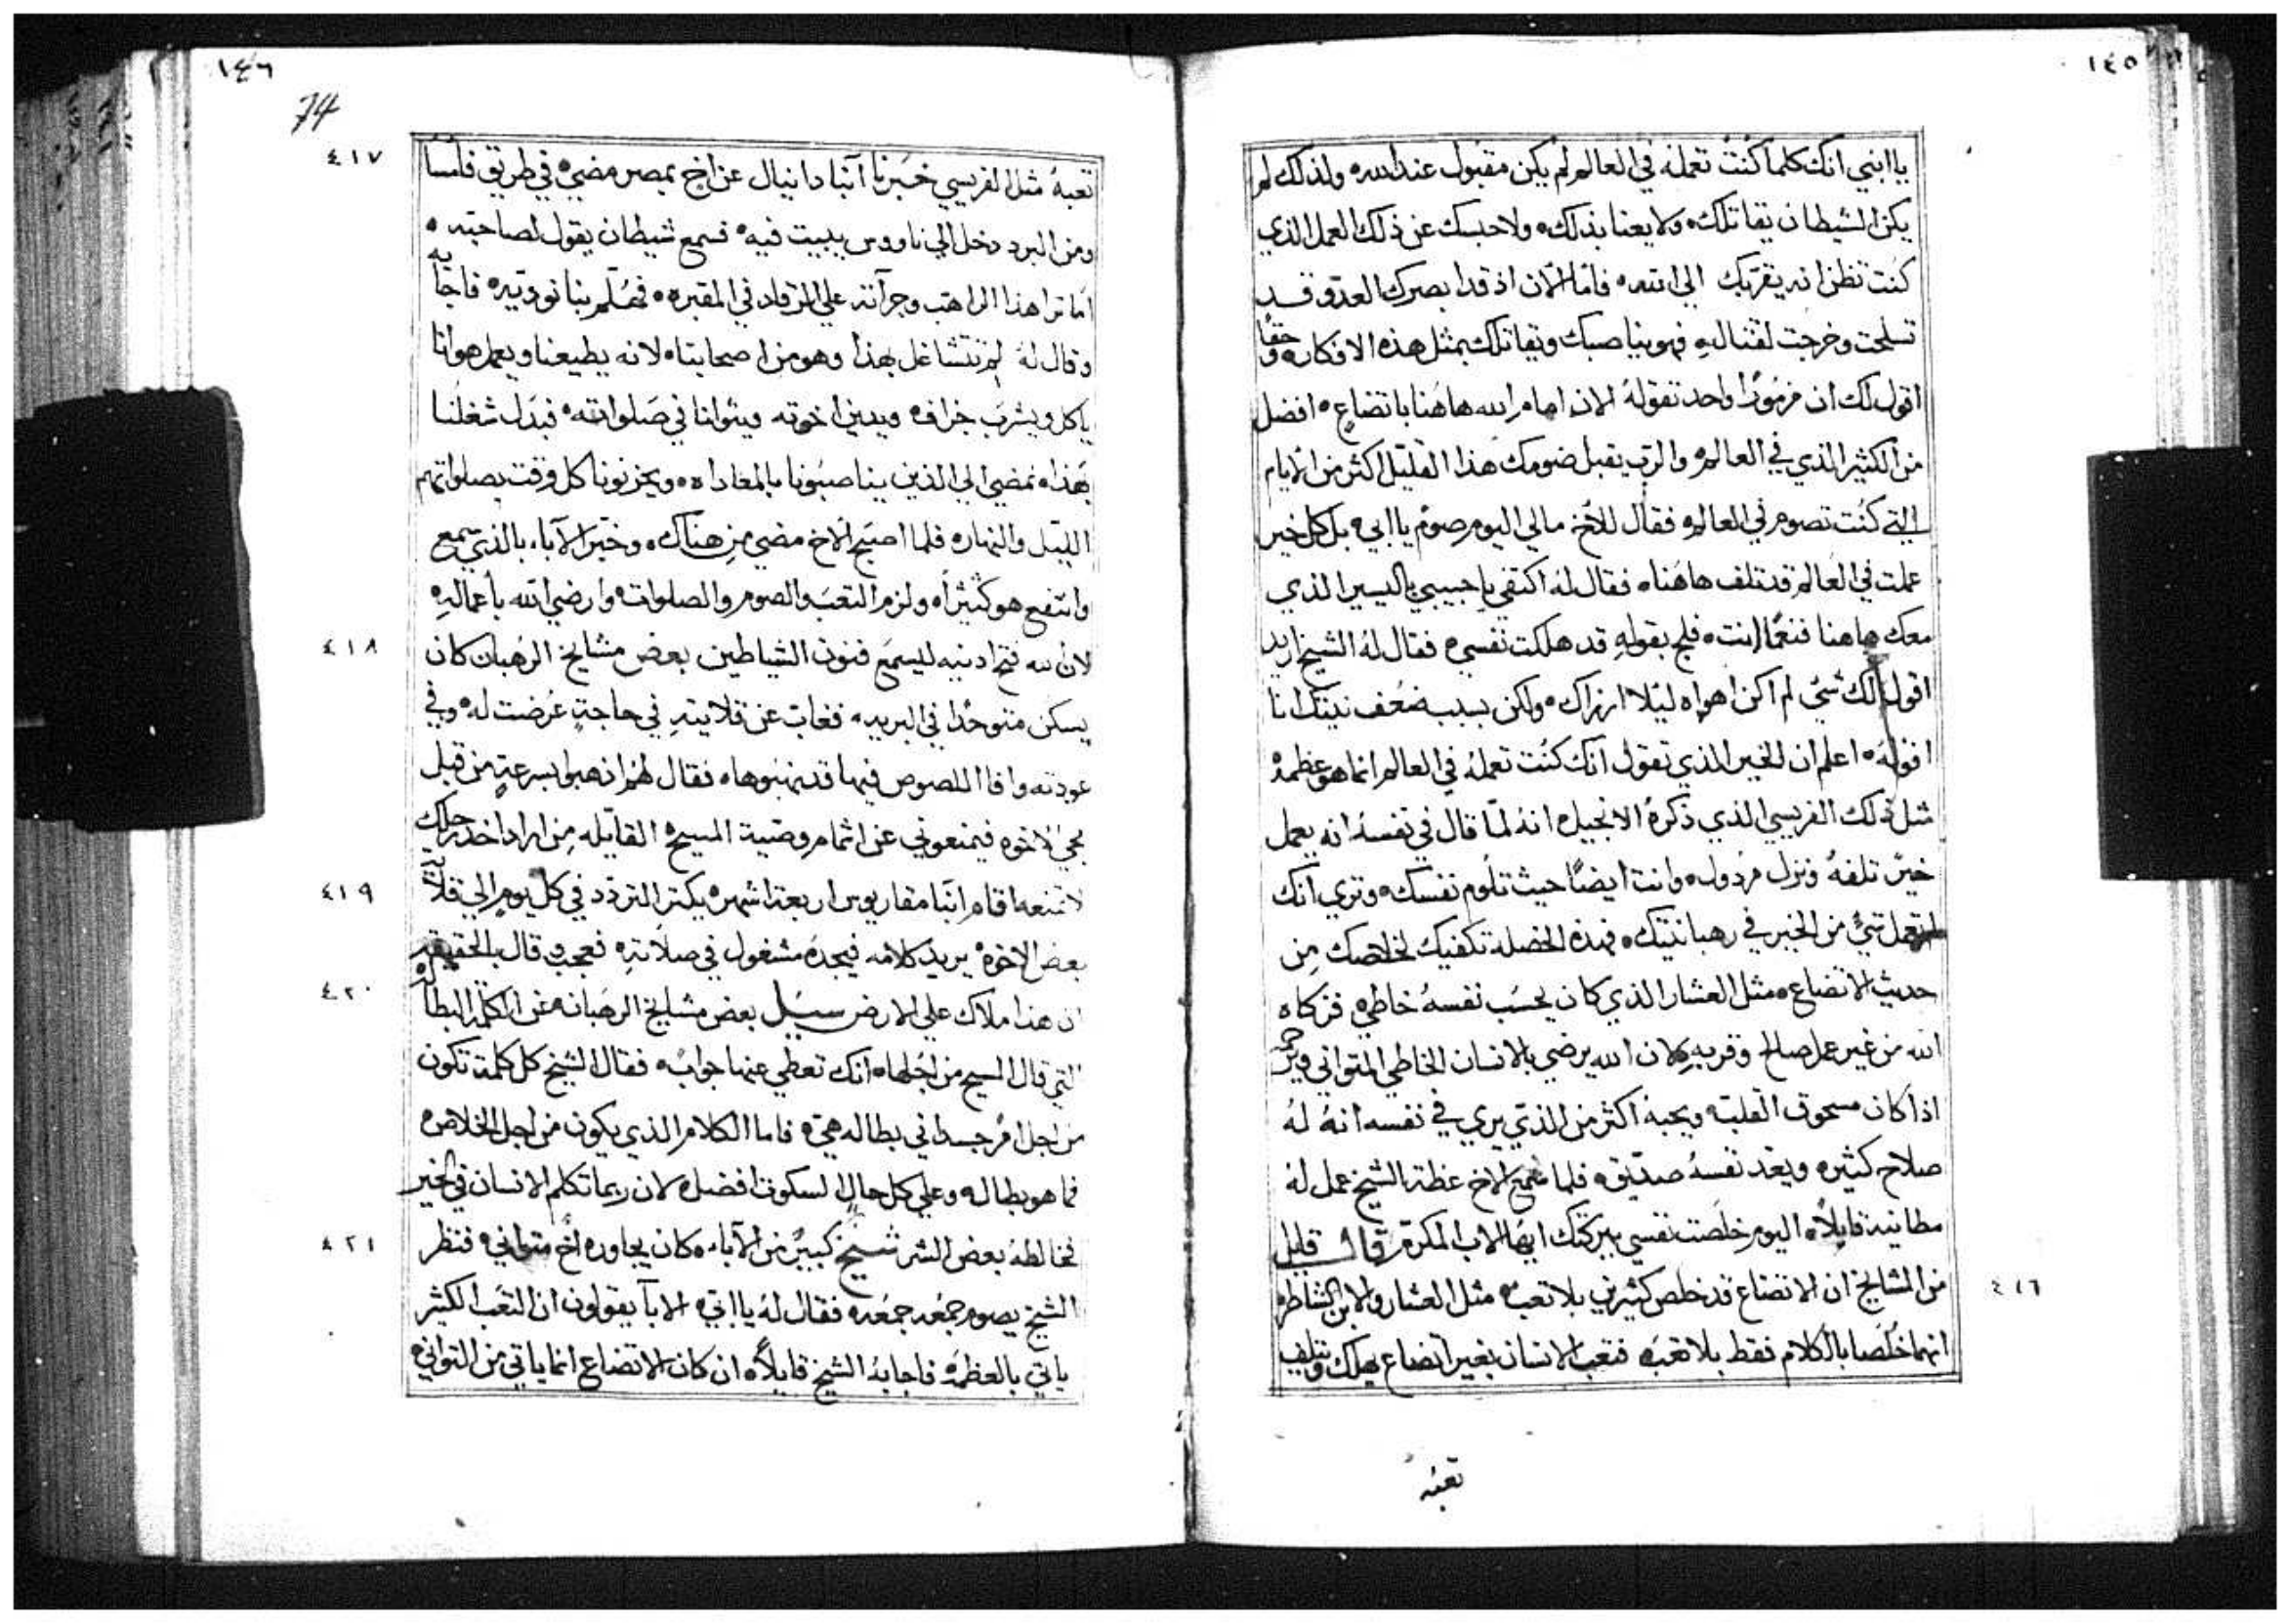 ١٤٥
يا ابني انك كلما كنت تعمله في العالم لم يكن مقبول عند الله ولذلك لم
يكن الشيطان يقاتلك ولا يعنا بذلك ولا حبسك عن ذلك العمل الذي
كنت تظن انه يقربك الي الله فاما الان اذ قد ابصرك العدو قد
تسلحت وخرجت لقتاله فهو يناصبك ويقاتلك بمثل هذه الافكار وحقا
اقول لك ان مزمورا واحد تقوله الان امام الله هاهنا باتضاع افضل
من الكثير الذي في العالم والرب يقبل صومك هذا القليل اكثر من الايام
التي كنت تصوم في العالم فقال للاخ مالي اليوم صوم يا ابي بل كل خير
عملت في العالم قد تلف هاهنا فقال له اكتفي يا حبيبي باليسير الذي
معك هاهنا فنعما انت فلج بقوله قد هلكت نفسي فقال له الشيخ اريد
اقول لك شي لم اكن اهواه ليلا ارزاك ولكن بسبب ضعف نيتك انا
اقوله اعلم ان الخير الذي تقول انك كنت تعمله في العالم انما هو عظمه
مثل ذلك الفريسي الذي ذكره الانجيل انه لما قال في نفسه انه يعمل
خير تلفه ونزل مردول وانت ايضا حيث تلوم نفسك وتري انك
لم تعمل شي من الخير في رهبانيتك فهذه الخصله تكفيك لخلاصك من
حديث الاتضاع مثل العشار الذي كان يحسب نفسه خاطي فزكاه
الله من غير عمل صالح وقربه لان الله يرضي بالانسان الخاطي المتواني ويرحمه
اذا كان مسحوق القلب ويحبه اكثر من الذي يري في نفسه انه له
صلاح كثير ويعد نفسه صديق فلما سمع الاخ عظة الشيخ عمل له
مطانيه قايلا اليوم خلصت نفسي ببركتك ايها الاب المكرم قال قليل
من المشايخ ان الاتضاع قد خلص كثيرين بلا تعب مثل العشار والابن الشاطر ٤١٦
انهما خلصا بالكلام فقط بلا تعب فتعب الانسان بغير اتضاع يهلك ويتلف
تعبه
١٤٦
74
٤١٧ تعبه مثل الفريسي خبرنا انبا دانيال عن اخ بمصر مضي في طريق فامسا
ومن البرد دخل الي ناووس يبيت فيه فسمع شيطان يقول لصاحبه
اما ترا هذا الراهب وجرآته علي الرقاد في المقبره فهلم بنا نوديه فاجابه
وقال له لم نتشاغل بهذا وهو من اصحابنا لانه يطيعنا ويعمل هوانا
ياكل ويشرب جزاف ويدين اخوته ويتوانا في صلواته فبدل شغلنا
بهذا نمضي الي الذين يناصبونا بالمعاداه ويحزنونا كل وقت بصلواتهم
الليل والنهار فلما اصبح الاخ مضي من هناك وخبر الآباء بالذي سمع
وانتفع هو كثيرا ولزم التعب والصوم والصلوات وارضي الله باعماله
٤١٨ لان الله فتح ادنيه ليسمع فنون الشياطين بعض مشايخ الرهبان كان
يسكن متوحدا في البريه فغاب عن قلايته في حاجة عرضت له وفي
عودته وافا اللصوص فيها قد نهبوها فقال لهم اذهبوا بسرعة من قبل
يجي الاخوه فيمنعوني عن اتمام وصية المسيح القايله من اراد اخد رحلك
٤١٩ لا تمنعه اقام انبا مقاريوس اربعة اشهر يكتر التردد في كل يوم الي قلاية
بعض الاخوه يريد كلامه فيجده مشغول في صلاته فعجب وقال بالحقيقه
٤٢٠ ان هذا ملاك علي الارض سيل بعض مشايخ الرهبان عن الكلمة البطاله
التي قال المسيح من اجلها انك تعطي عنها جواب فقال الشيخ كل كلمة تكون
من اجل امر جسداني بطاله هي فاما الكلام الذي يكون من اجل الخلاص
فما هو بطاله وعلي كل حال السكوت افضل لان ربما تكلم الانسان في الخير
٤٢١ فخالطه بعض الشر شيخ كبير من الآباء كان يجاوره اخ متواني فنظر
الشيخ يصوم جمعه جمعه فقال له يا ابي الابآ يقولون ان التعب الكثير
ياتي بالعظمه فاجابه الشيخ قايلا ان كان الاتضاع انما ياتي من التواني